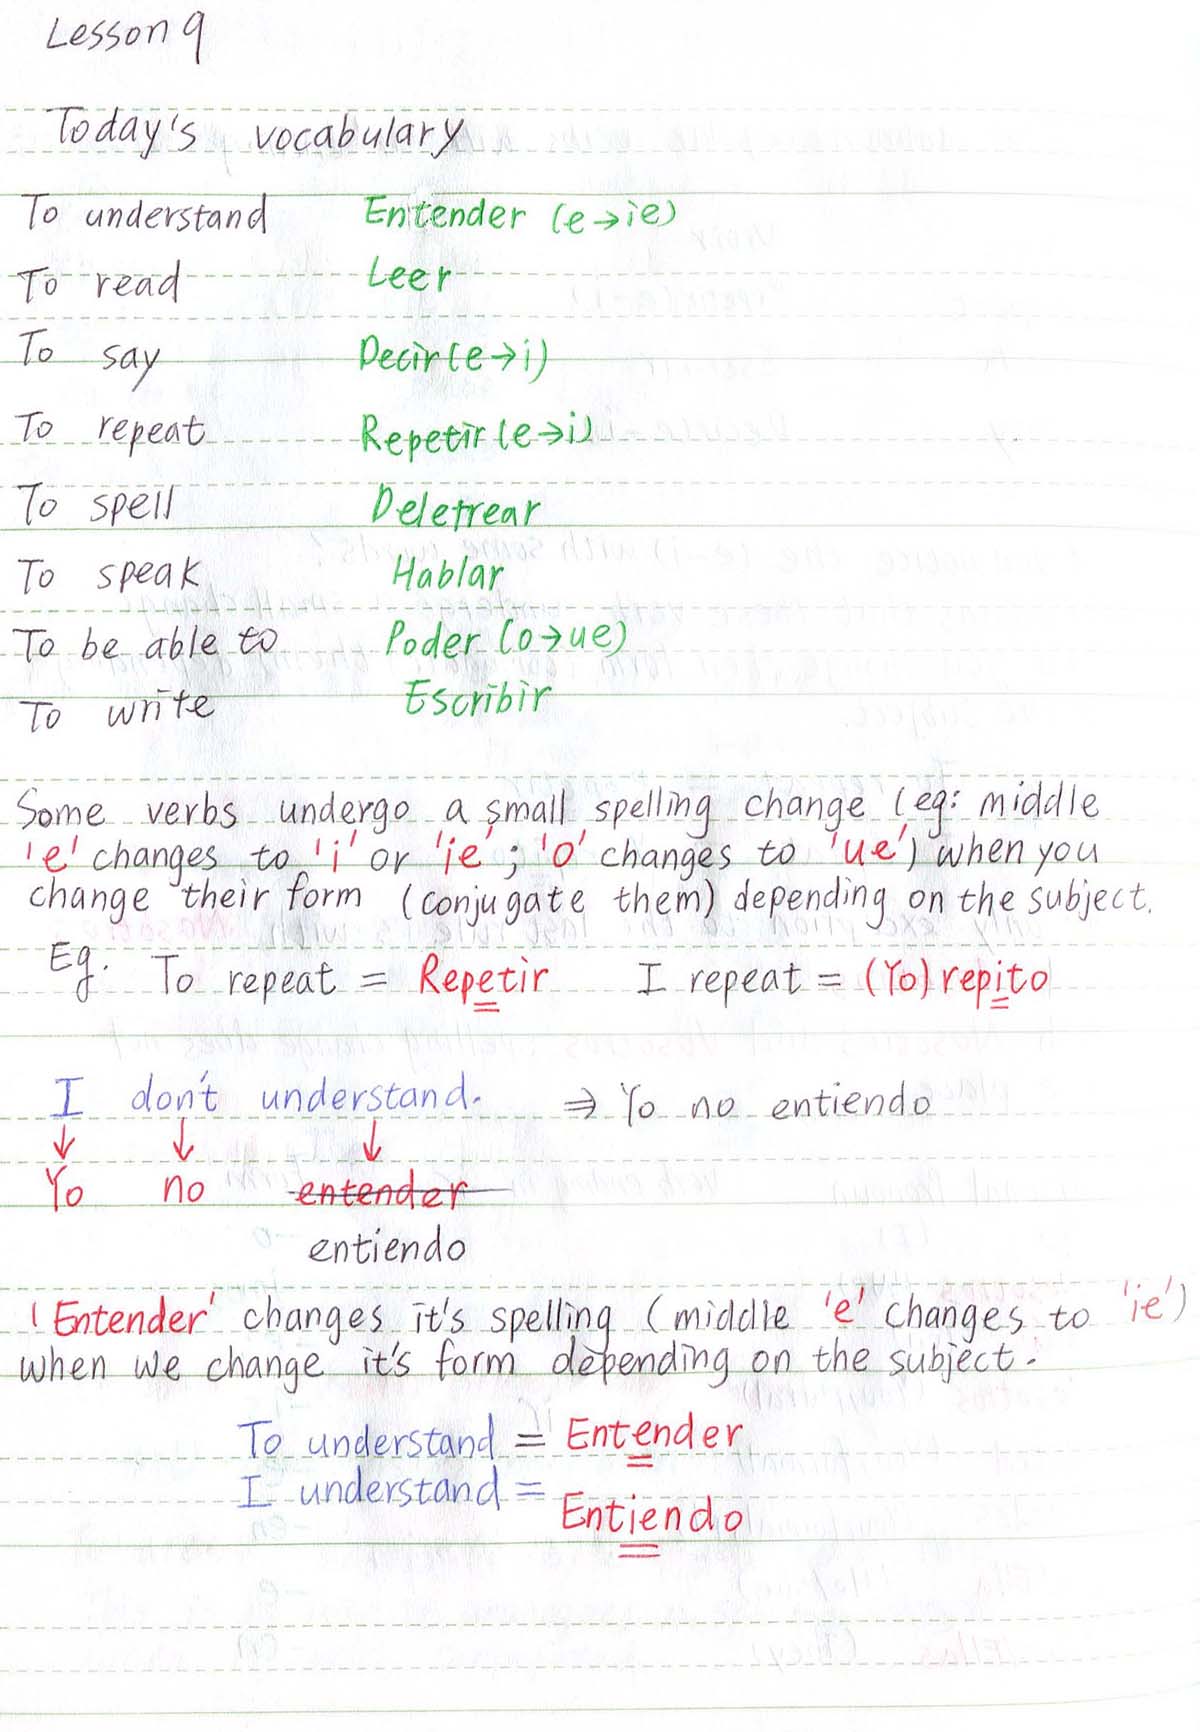 Lesson 9
Today's vocabulary
To understand Entender (e→ie)
To read Leer
To say Decir (e→i)
To repeat Repetir (e→i)
To spell Deletrear
To speak Hablar
To be able to Poder (o→ue)
To write Escribir
Some verbs undergo a small spelling change (eg: middle
'e' changes to 'i' or 'ie'; 'o' changes to 'ue') when you
change their form (conjugate them) depending on the subject.
Eg. To repeat = Repetir I repeat = (Yo) repito
I don't understand. ⇒ Yo no entiendo
↓ ↓ ↓
Yo no entender
entiendo
'Entender' changes it's spelling (middle 'e' changes to 'ie')
when we change it's form depending on the subject.
To understand = Entender
I understand =
Entiendo